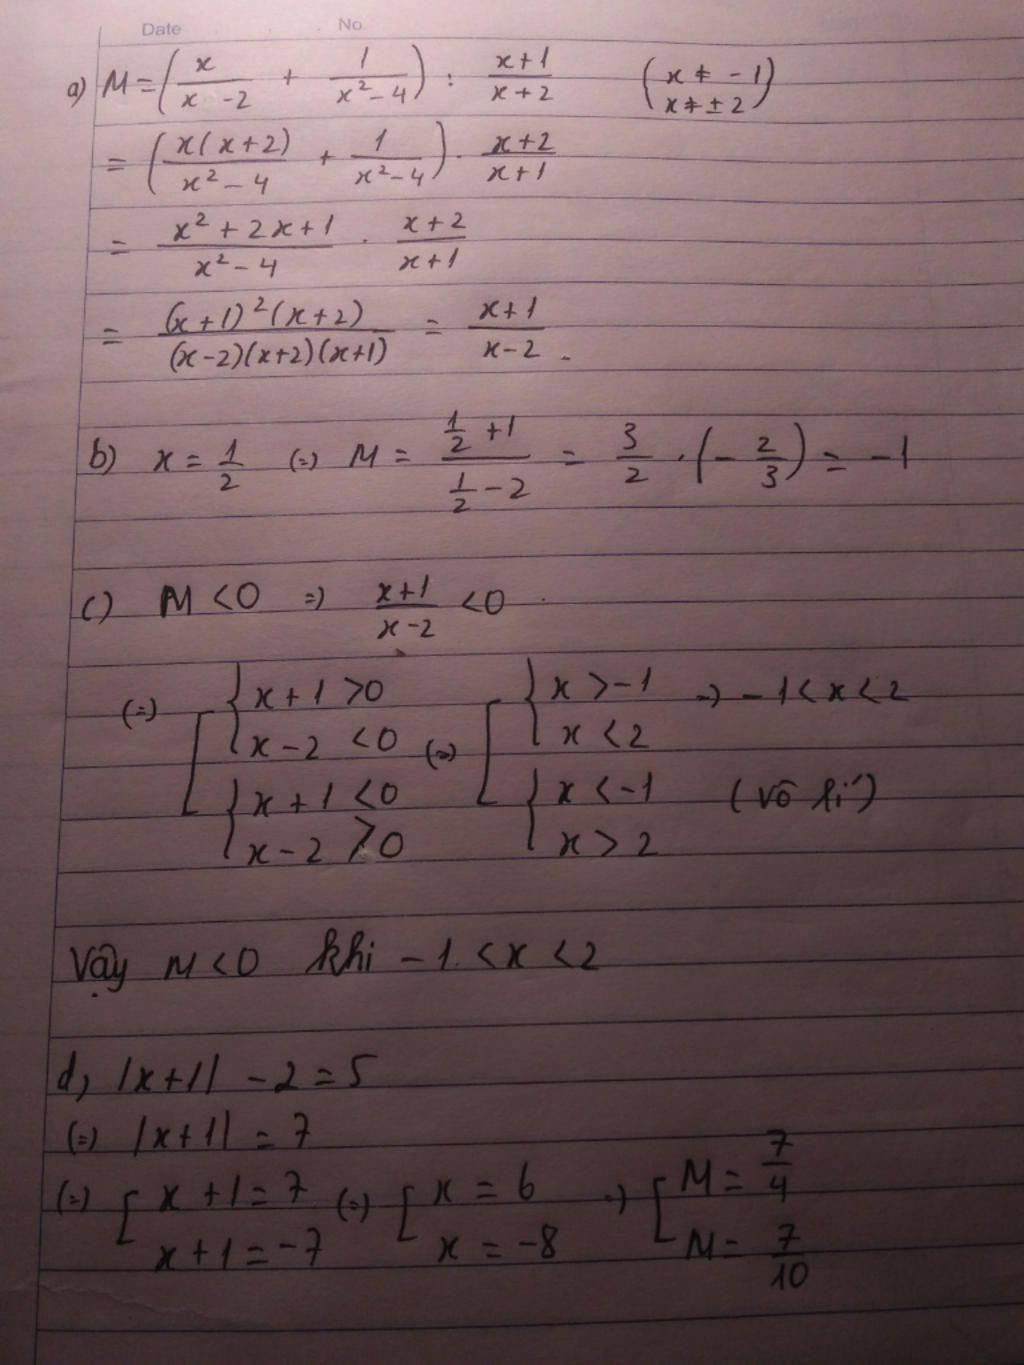 Date No.
a) M = (x/(x - 2) + 1/(x² - 4)) : (x+1)/(x+2) (x ≠ -1 x ≠ ± 2)
= (x(x+2)/(x² - 4) + 1/(x² - 4)) . (x+2)/(x+1)
= (x² + 2x + 1)/(x² - 4) . (x+2)/(x+1)
= (x+1)²(x+2)/(x-2)(x+2)(x+1) = (x+1)/(x-2) .
b) x = 1/2 (=) M = (1/2 + 1)/(1/2 - 2) = 3/2 . (- 2/3) = -1
c) M < 0 =) (x+1)/(x-2) < 0
(=) [ { x + 1 > 0 (=) [ { x > -1 → -1 < x < 2
x - 2 < 0 x < 2
{ x + 1 < 0 { x < -1 (vô lí)
x - 2 > 0 x > 2
Vậy M < 0 khi -1 < x < 2
d, |x+1| - 2 = 5
(=) |x+1| = 7
(=) [ x + 1 = 7 (=) [ x = 6 → [ M = 7/4
x + 1 = -7 x = -8 M = 7/10